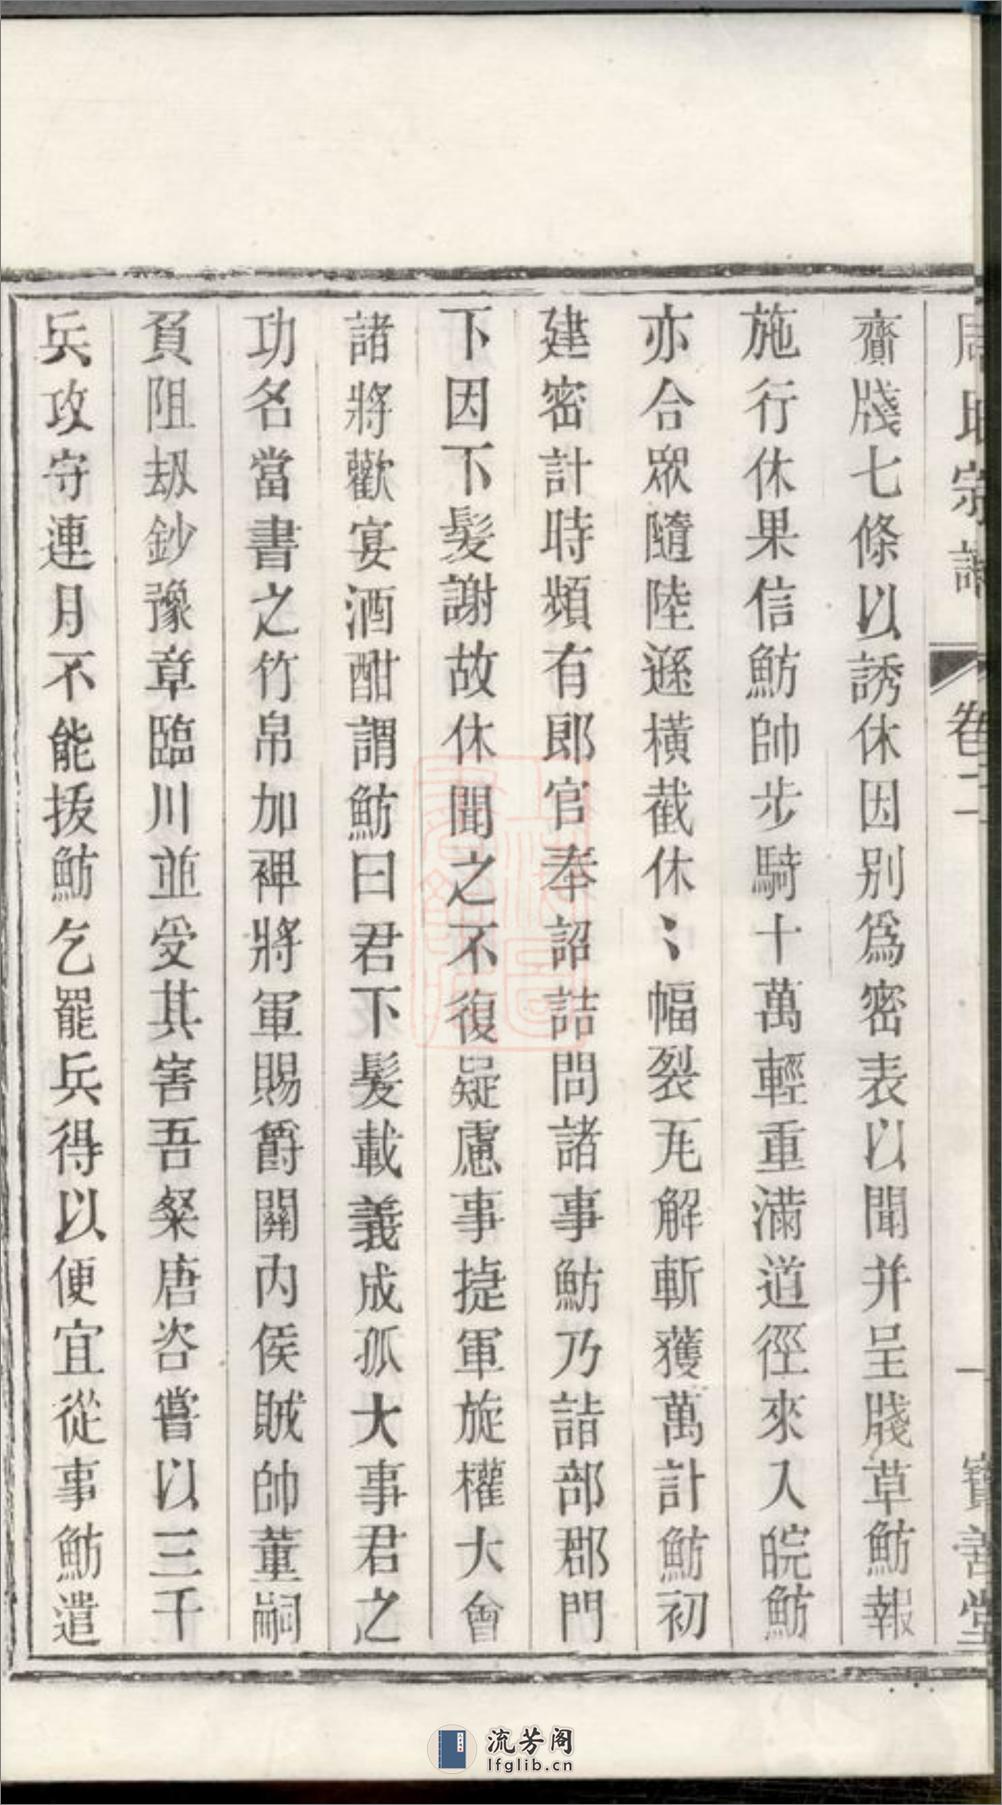 周氏宗譜 卷二 一 寶善堂
齎牋七條以誘休因別爲密表以聞并呈牋草魴報
施行休果信魴帥步騎十萬輕重滿道徑來入皖魴
亦合眾隨陸遜橫截休〻幅裂瓦解斬獲萬計魴初
建密計時頻有郎官奉詔詰問諸事魴乃詣部郡門
下因下髮謝故休聞之不復疑慮事捷軍旋權大會
諸將歡宴酒酣謂魴曰君下髮載義成孤大事君之
功名當書之竹帛加裨將軍賜爵關內侯賊帥董嗣
負阻刼鈔豫章臨川並受其害吾粲唐咨嘗以三千
兵攻守連月不能拔魴乞罷兵得以便宜從事魴遣
流芳阁
lfglib.cn